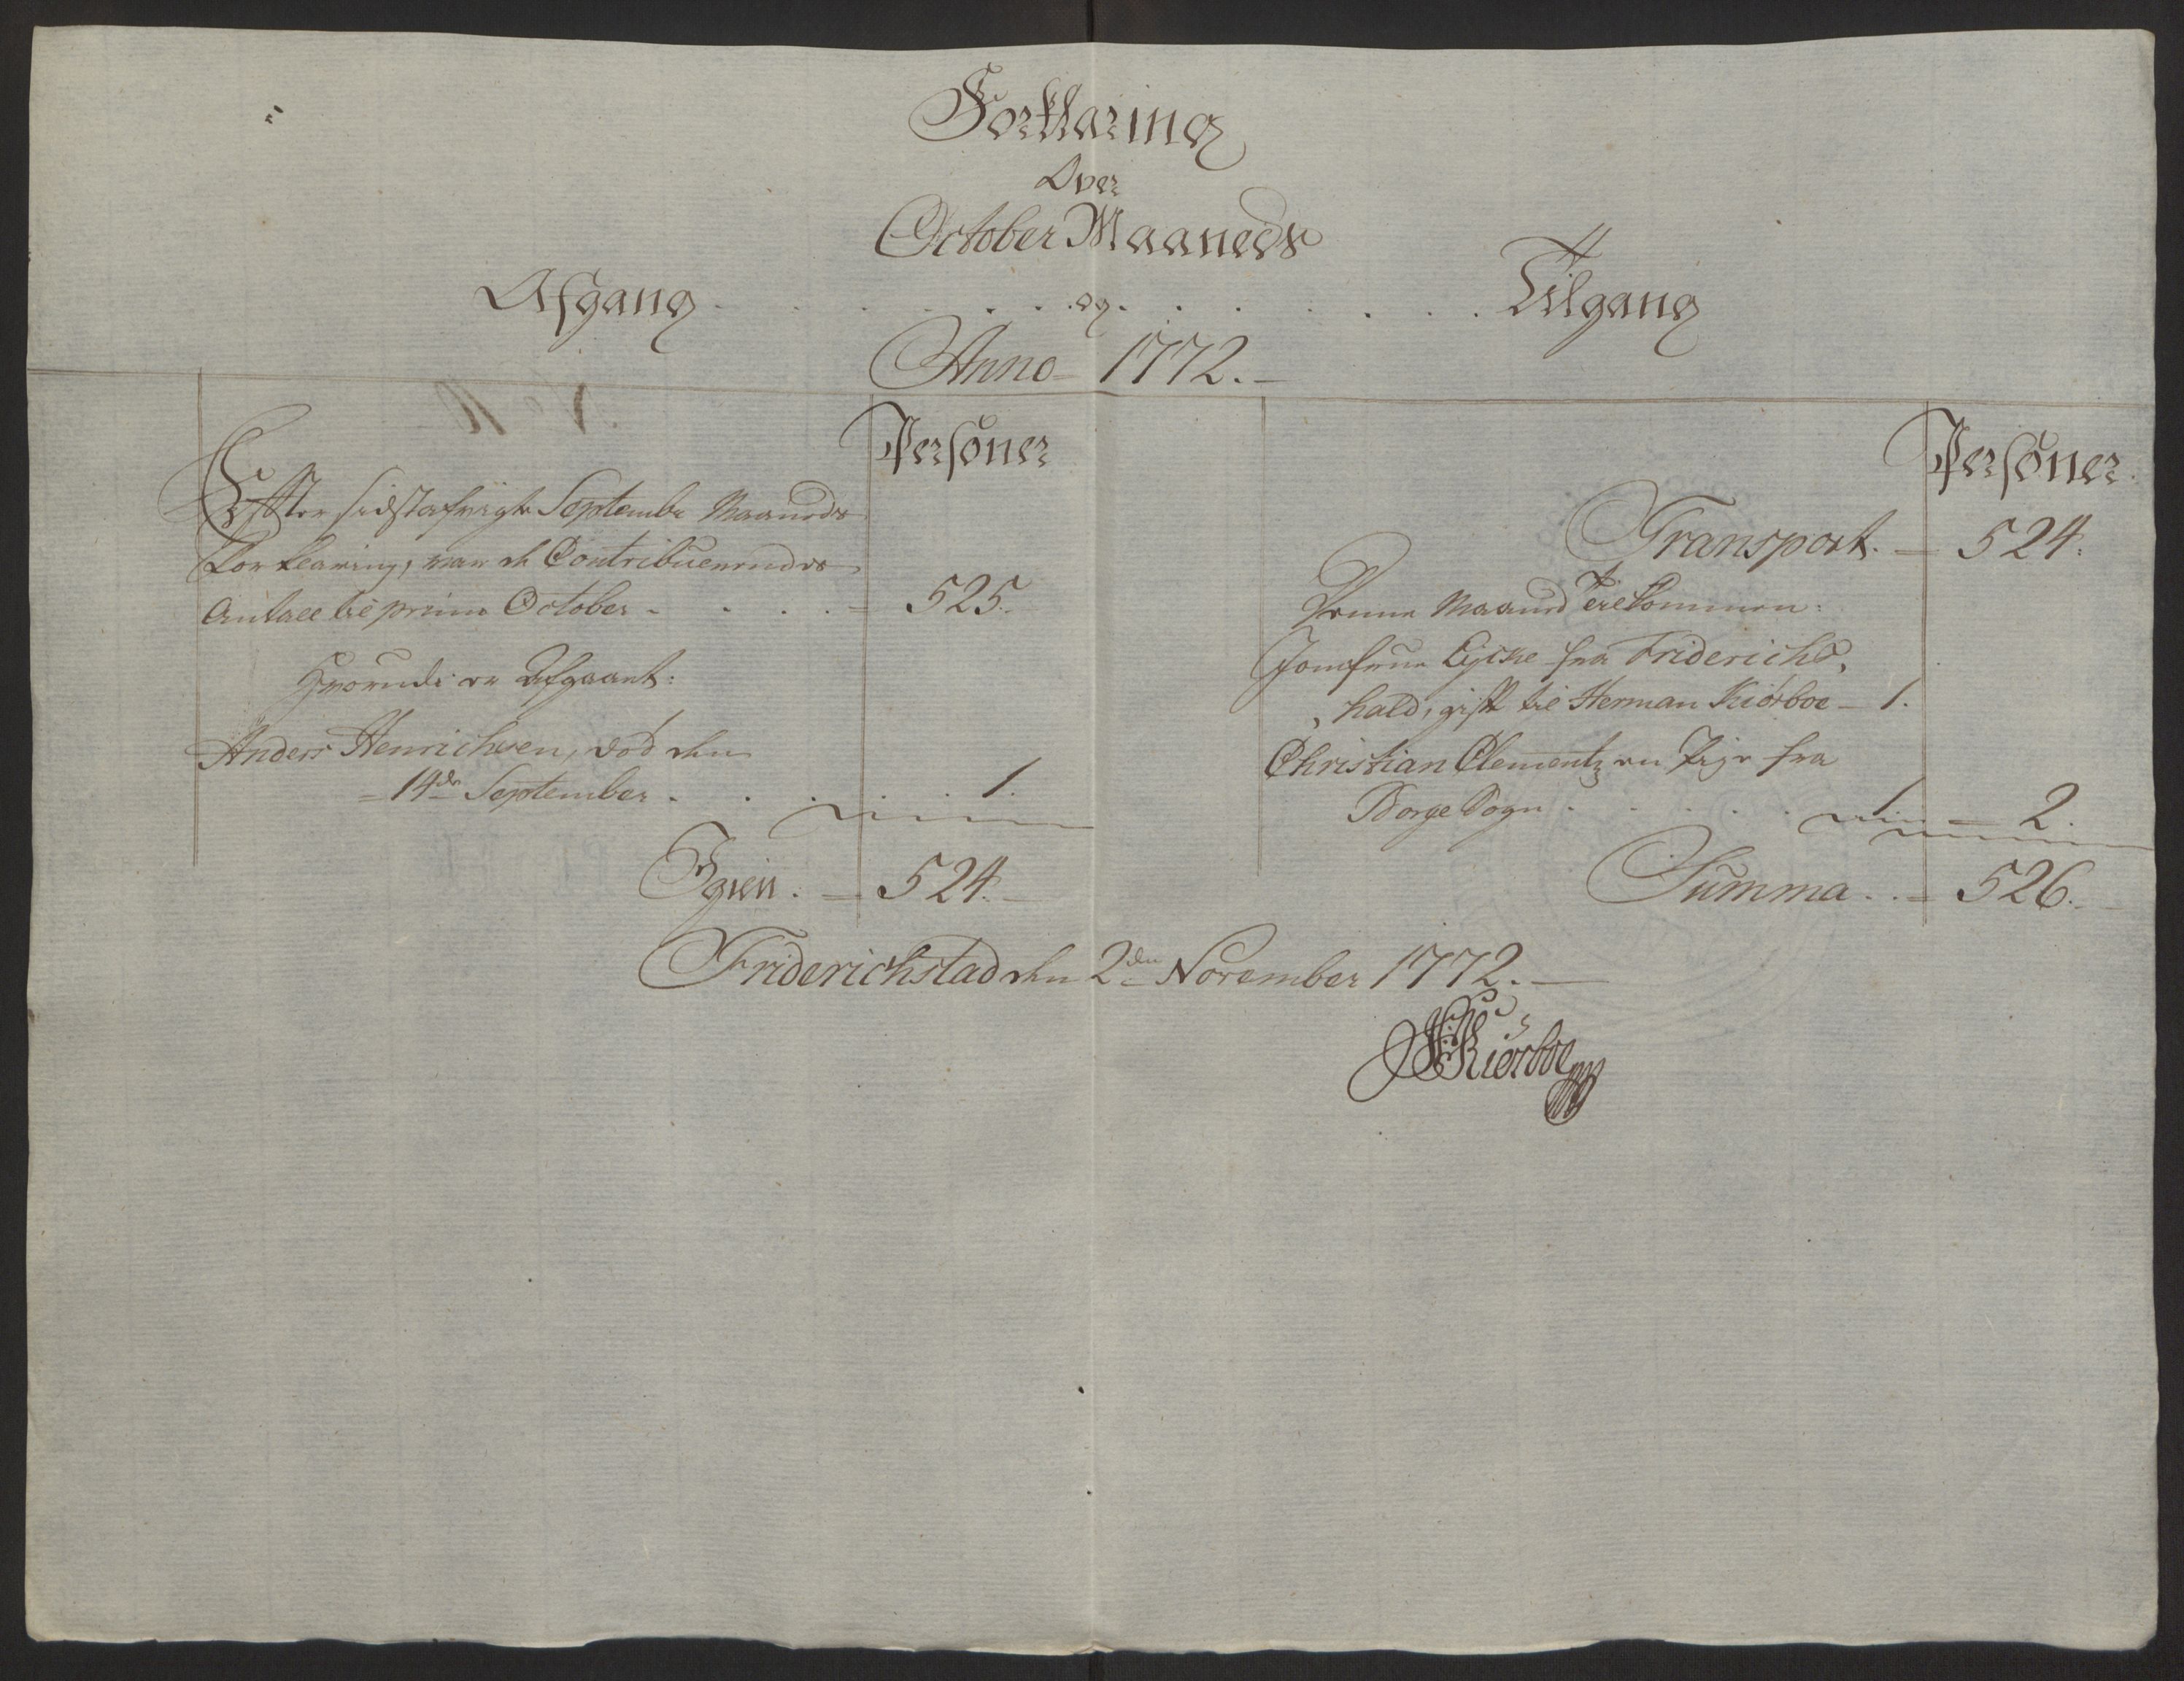 Forklaring
Over
October Maaneds
Afgang . . . . . . og . . . . . . Tilgang
Anno 1772.
Personer
Effter sidstafvigte Septembr Maaneds
Forklaring, var de Contribuerendes
Antall til primo October - . . . = 525.
Hvorudi er Afgaaet:
Anders Henrichsen, død den
14de September . . . . . 1.
Igien. — 524.
Personer
Transport. — 524.
Denne Maaned tilkommen:
Jomfrue Eyche fra Friderichs,
hald, gift til Herman Kiørboe - 1.
Christian Clementz en Pige fra
Borge Sogn . . . . . 1. — 2.
Summa. . = 526.
Friderichstad den 2den November 1772.
Kiørboe